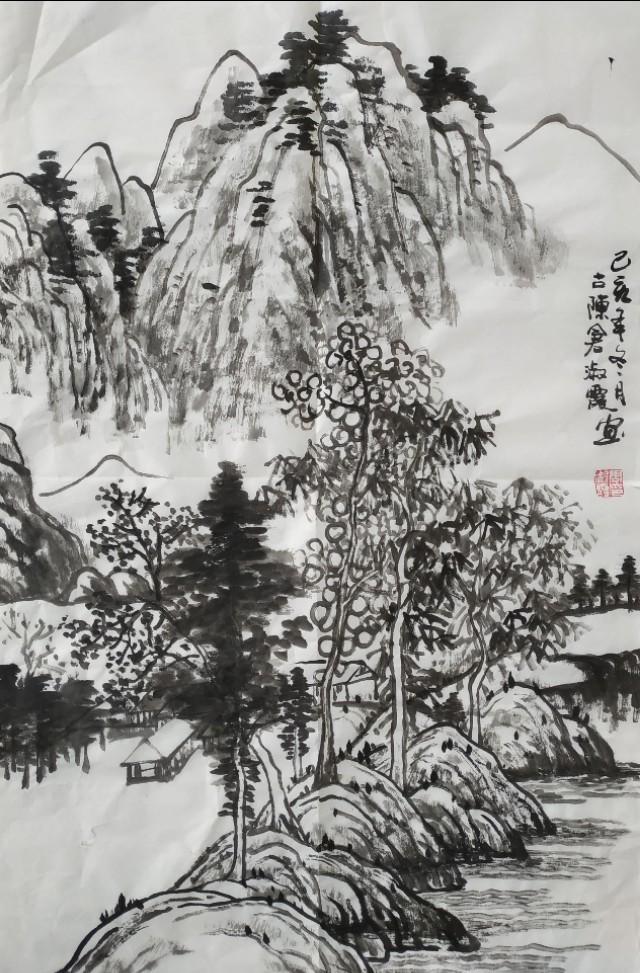 己亥年冬月
古陳倉淑霞画